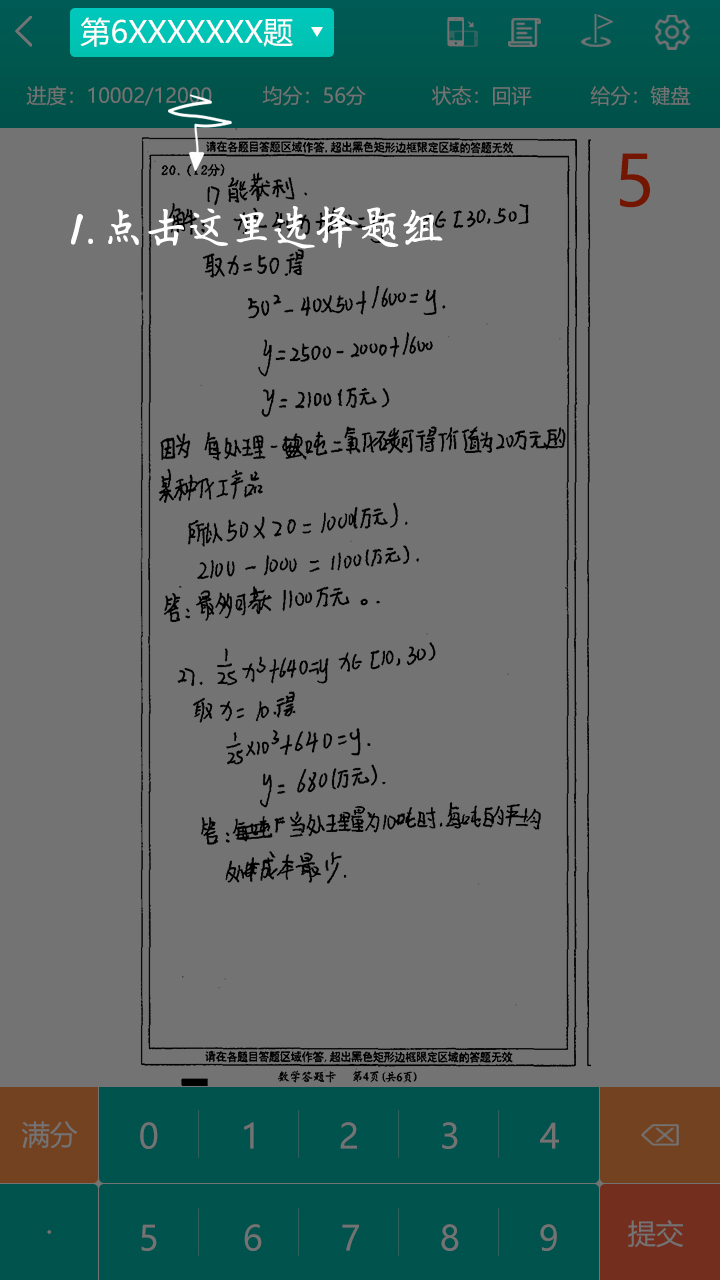 第6XXXXXXX题
进度：10002/12000 均分：56分 状态：回评 给分：键盘
请在各题目答题区域作答，超出黑色矩形边框限定区域的答题无效
5
20.（12分）
1) 能获利.
1.点击这里选择题组
∈[30,50]
取x=50得
50²-40×50+1600=y.
y=2500-2000+1600
y=2100(万元)
因为 每处理一吨二氧化碳可得价值为20万元的
某种化工产品
所以50×20=1000(万元).
2100-1000=1100(万元).
答:最多可获1100万元。.
27. 1/25 x³+640=y x∈[10,30)
取x=10.得
1/25×10³+640=y.
y=680(万元).
答: 当处理量为10吨时,每吨的平均
成本最少.
请在各题目答题区域作答，超出黑色矩形边框限定区域的答题无效
数学答题卡 第4页(共6页)
满分 0 1 2 3 4
· 5 6 7 8 9 提交